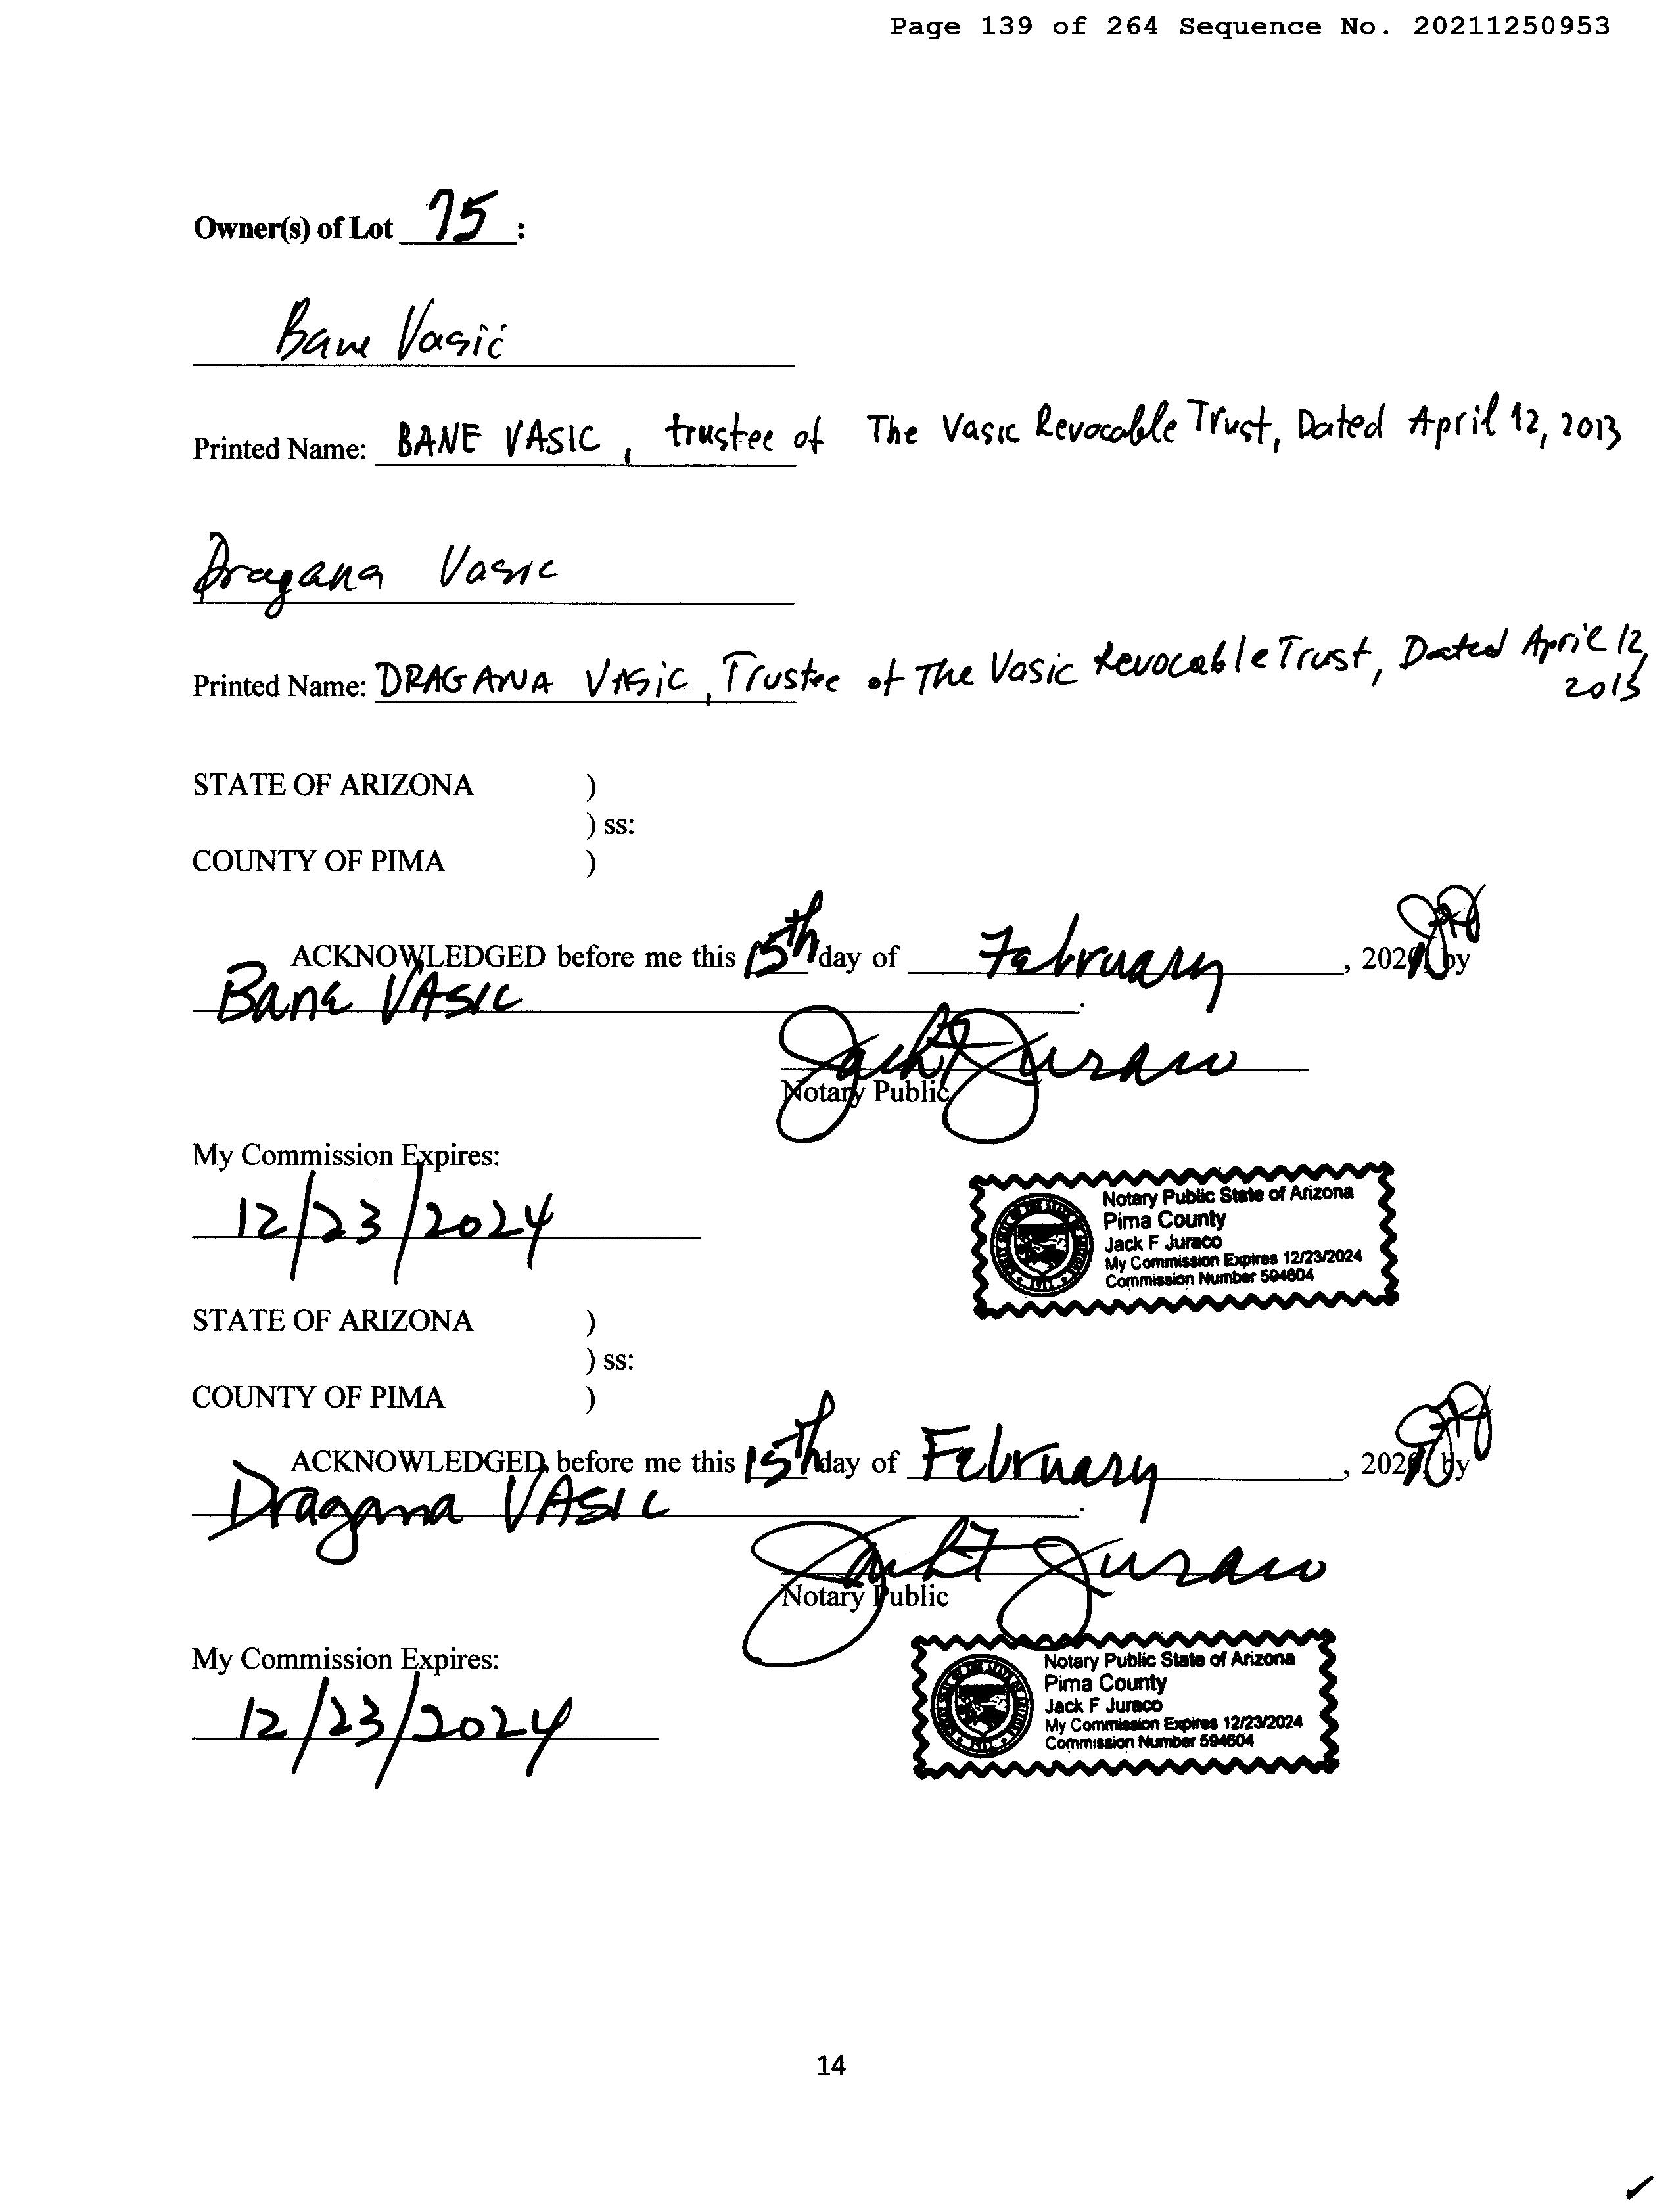 Page 139 of 264 Sequence No. 20211250953
Owner(s) of Lot 75 :
Bane Vasić
Printed Name: BANE VASIC , trustee of The Vasic Revocable Trust, Dated April 12, 2013
Dragana Vasic
Printed Name: DRAGANA VASIC, Trustee of The Vasic Revocable Trust, Dated April 12,
2013
STATE OF ARIZONA )
) ss:
COUNTY OF PIMA )
ACKNOWLEDGED before me this 15th day of February , by
Bane VASIC .
Jack F Juraco
Notary Public
My Commission Expires:
12/23/2024
Notary Public State of Arizona
Pima County
Jack F Juraco
My Commission Expires 12/23/2024
Commission Number 594604
STATE OF ARIZONA )
) ss:
COUNTY OF PIMA )
ACKNOWLEDGED before me this 15th day of February , by
Dragana VASIC .
Jack F Juraco
Notary Public
My Commission Expires:
12/23/2024
Notary Public State of Arizona
Pima County
Jack F Juraco
My Commission Expires 12/23/2024
Commission Number 594604
14